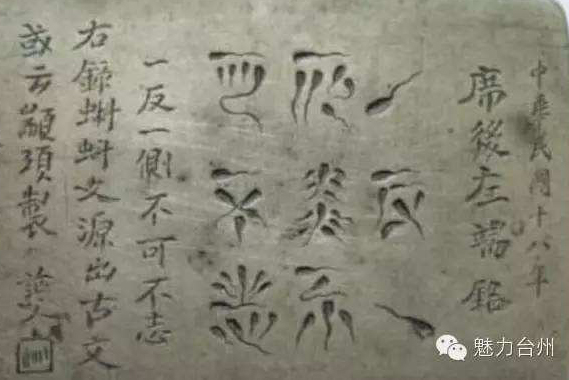 中華民國十八年
席後左端銘
一反一
側不
可不志
一反一側不可不志
右錄蝌蚪文源出古文
或云顓頊製
魅力台州